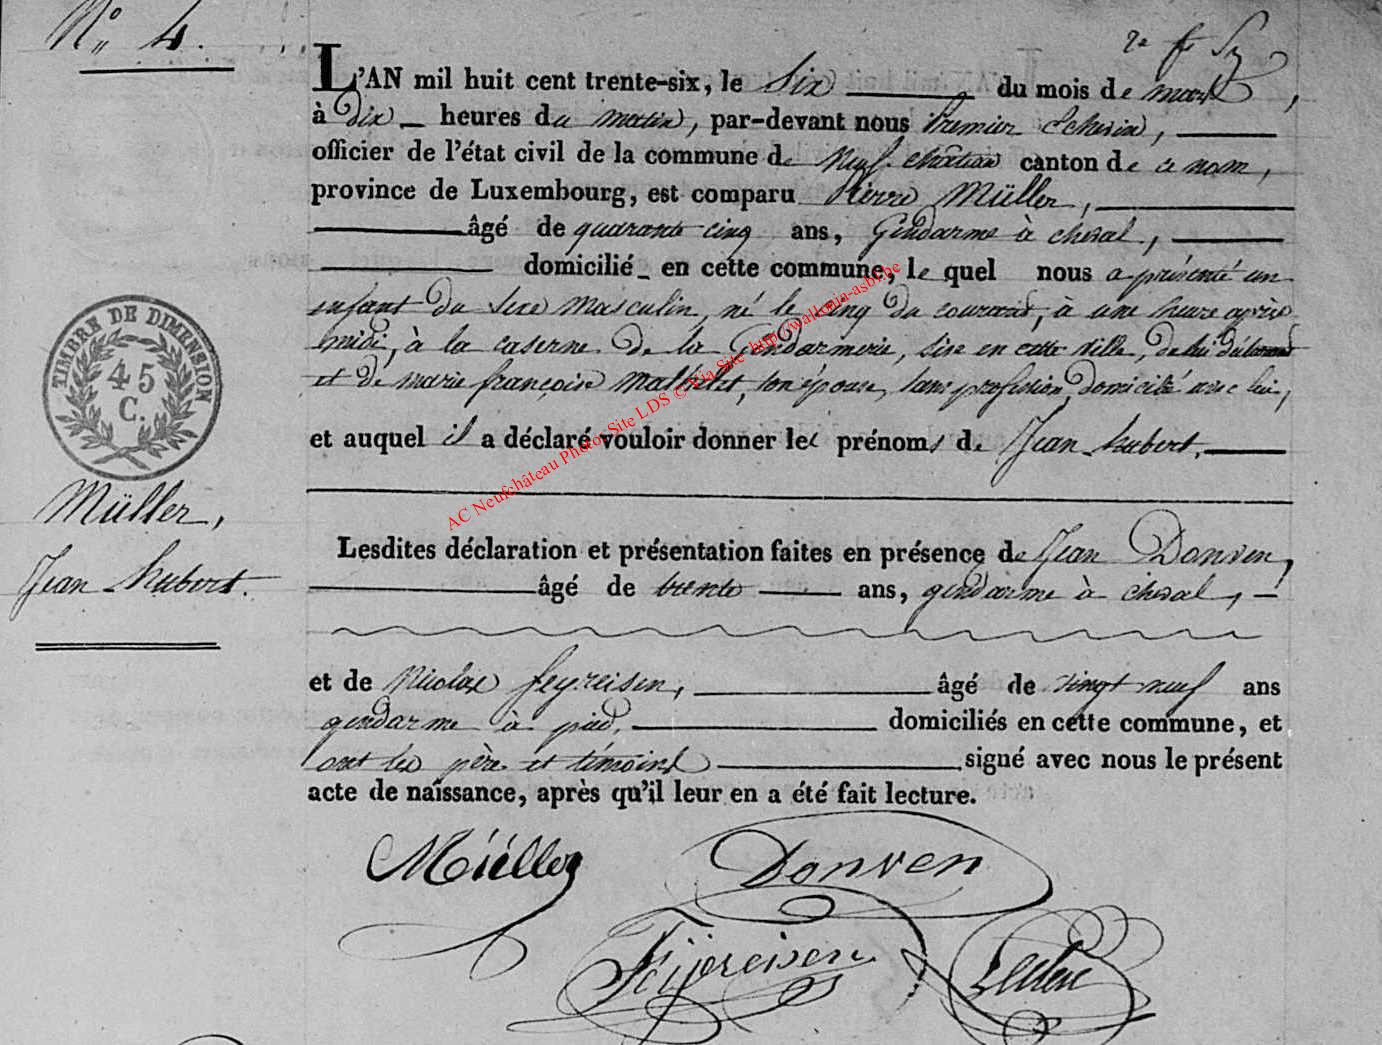 N° 4.
L'AN mil huit cent trente-six, le Six du mois de mars,
à dix heures du matin, par-devant nous Premier Echevin,
officier de l'état civil de la commune de Neufchâteau canton de ce nom,
province de Luxembourg, est comparu Pierre Müller,
âgé de quarante cinq ans, Gendarme à cheval,
domicilié en cette commune, le quel nous a présenté un
enfant du Sexe Masculin, né le cinq du courant, à une heure après
midi, à la caserne de la Gendarmerie, sise en cette ville, de lui déclarant
et de marie françoise, son épouse, sans profession, domiciliée avec lui,
et auquel il a déclaré vouloir donner les prénoms de Jean hubert.
TIMBRE DE DIMENSION
45
C.
Müller,
Jean Hubert.
Lesdites déclaration et présentation faites en présence de Jean Donven,
âgé de trente ans, gendarme à cheval,
et de Nicolas feyreisen, âgé de vingt neuf ans
gendarme à pied, domiciliés en cette commune, et
ont les père et témoins signé avec nous le présent
acte de naissance, après qu'il leur en a été fait lecture.
Müller Donven
Feijereisen
AC Neufchâteau Photos Site LDS © Via Site http://wallonia-asbl.be